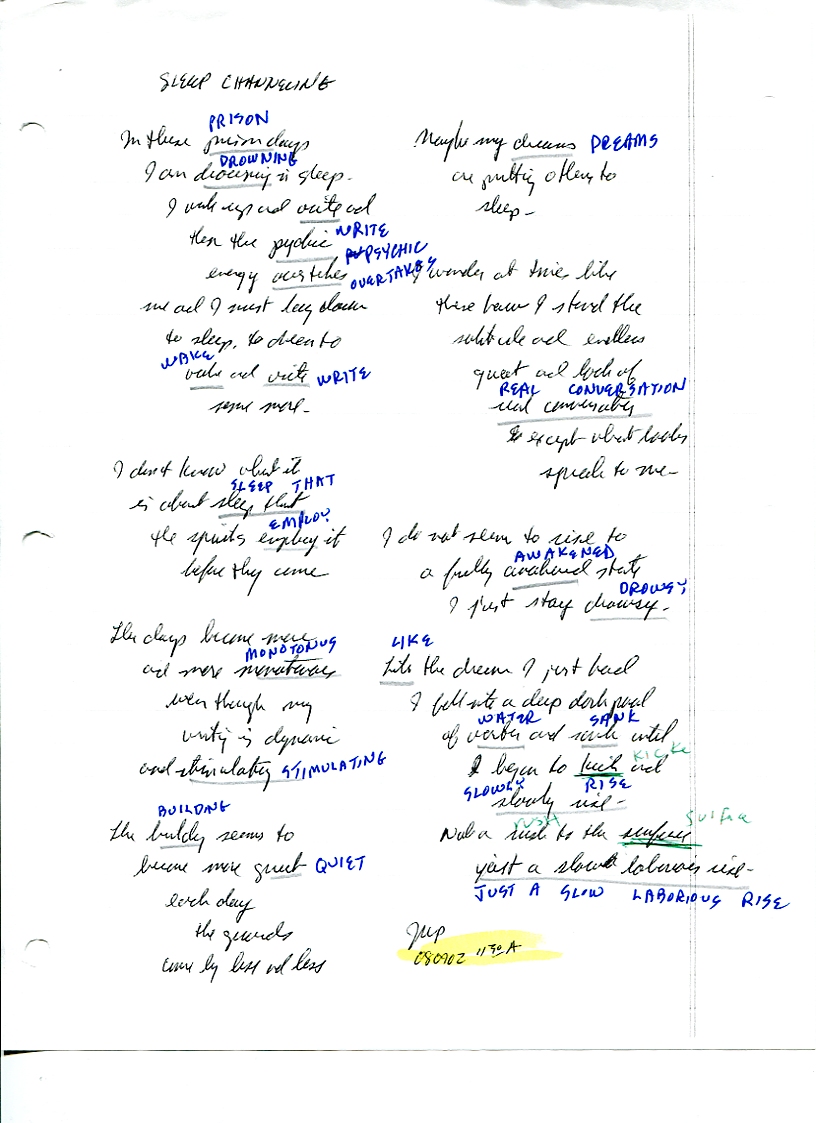 SLEEP CHANNELING
PRISON
In these prison days
DROWNING
I am drowning in sleep.
I wake up and write and
WRITE
then the psychic
PSYCHIC
energy overtakes
OVERTAKES
me and I must lay down
to sleep, to dream to
WAKE
wake and write WRITE
some more.
I don't know what it
SLEEP THAT
is about sleep that
EMPLOY
the spirits employ it
before they come
The days become more
MONOTONUS
and more monotonous
even though my
writing is dynamic
and stimulating STIMULATING
BUILDING
The building seems to
become more quiet QUIET
each day
the guards
come by less and less
Maybe my dreams DREAMS
are putting others to
sleep.
I wonder at times like
these how I stand the
solitude and endless
quiet and lack of
REAL CONVERSATION
real conversation
except what books
speak to me.
I do not seem to rise to
AWAKENED
a fully awakened state
DROWSY
I just stay drowsy.
LIKE
Like the dream I just had
I fell into a deep dark pool
WATER SANK
of water and sank until
KICK
I began to kick and
SLOWLY RISE
slowly rise.
rush surface
Not a rush to the surface
just a slow laborious rise.
JUST A SLOW LABORIOUS RISE
JMP
080902 11 30 A